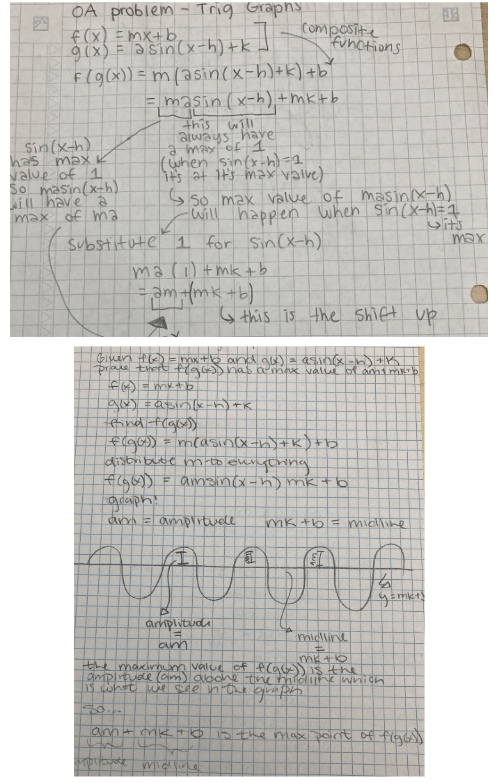 OA problem - Trig Graphs
f(x) = mx+b
g(x) = asin(x-h)+k
composite functions
f(g(x)) = m(asin(x-h)+k)+b
= masin(x-h)+mk+b
this will always have a max of 1
(when sin(x-h)=1 it's at it's max value)
sin(x-h)
has max
value of 1
so masin(x-h)
will have a
max of ma
↳ so max value of masin(x-h)
will happen when sin(x-h)=1
↳ it's max
substitute 1 for sin(x-h)
ma(1)+mk+b
= am+(mk+b)
↳ this is the shift up
Given f(x)=mx+b and g(x)=asin(x-h)+k
prove that f(g(x)) has a max value of am+mk+b
f(x) = mx+b
g(x) = asin(x-h)+k
find f(g(x))
f(g(x)) = m(asin(x-h)+k)+b
distribute m to everything
f(g(x)) = amsin(x-h) mk+b
graph!
am = amplitude mk+b = midline
y=mk+b
amplitude
=
am
midline
=
mk+b
the maximum value of f(g(x)) is the
amplitude (am) above the midline which
is what we see in the graph
so...
am+mk+b is the max point of f(g(x))
amplitude midline